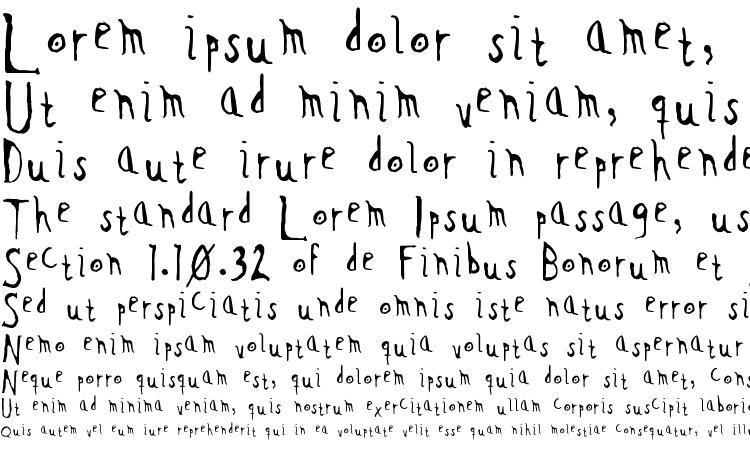 Lorem ipsum dolor sit amet,
Ut enim ad minim veniam, quis
Duis aute irure dolor in reprehende
The standard Lorem Ipsum passage, us
Section 1.10.32 of de Finibus Bonorum et
Sed ut perspiciatis unde omnis iste natus error si
Nemo enim ipsam voluptatem quia voluptas sit aspernatur
Neque porro quisquam est, qui dolorem ipsum quia dolor sit amet, cons
Ut enim ad minima veniam, quis nostrum exercitationem ullam corporis suscipit laborio
Quis autem vel eum iure reprehenderit qui in ea voluptate velit esse quam nihil molestiae consequatur, vel illu